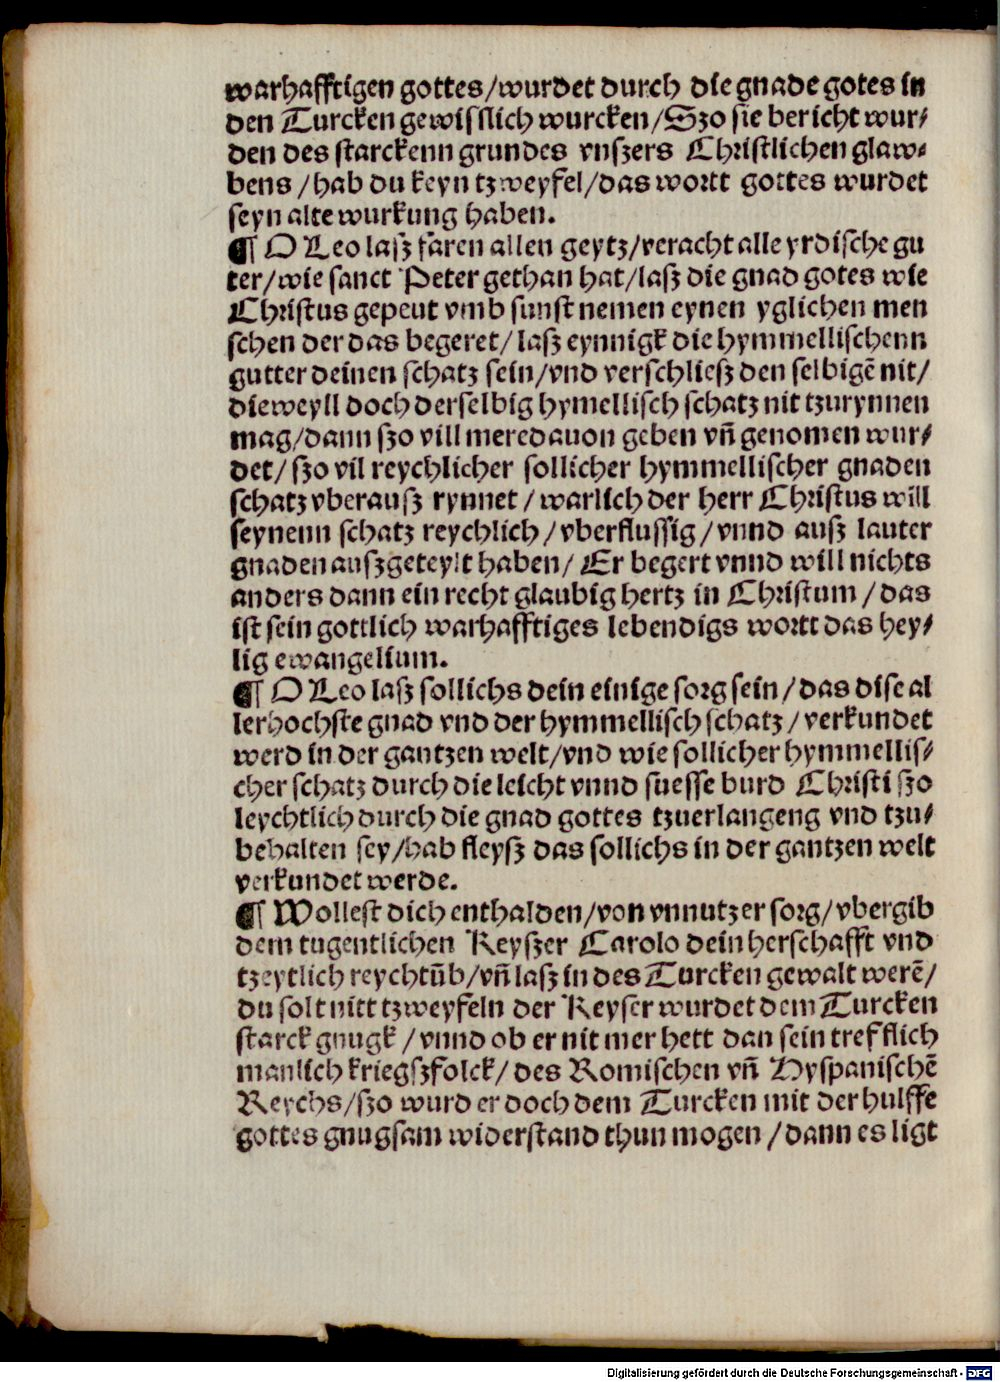 warhafftigen gottes/wurdet durch die gnade gotes in
den Turcken gewisslich wurcken/Szo sie bericht wur⸗
den des starckenn grundes vnszers Christlichen glaw⸗
bens /hab du keyn tzweyfel/das wortt gottes wurdet
seyn alte wurkung haben.
¶ O Leo lasz faren allen geytz/veracht alle yrdische gu
ter/wie sanct Peter gethan hat/lasz die gnad gotes wie
Christus gepeut vmb sunst nemen eynen yglichen men
schen der das begeret/ lasz eynnigk die hymmellischenn
gutter deinen schatz sein/vnd verschliesz den selbigē nit/
dieweyll doch derselbig hymellisch schatz nit tzurynnen
mag/dann szo vill mere dauon geben vn̄ genomen wur⸗
det/ szo vil reychlicher sollicher hymmellischer gnaden
schatz vberausz rynnet / warlich der herr Christus will
seynenn schatz reychlich / vberflussig / vnnd ausz lauter
gnaden auszgeteylt haben/ Er begert vnnd will nichts
anders dann ein recht glaubig hertz in Christum / das
ist sein gottlich warhafftiges lebendigs wortt das hey⸗
lig ewangelium.
¶ O Leo lasz sollichs dein einige sorg sein / das dise al
lerhochste gnad vnd der hymmellisch schatz / verkundet
werd in der gantzen welt/vnd wie sollicher hymmellis⸗
cher schatz durch die leicht vnnd suesse burd Christi szo
leychtlich durch die gnad gottes tzuerlangeng vnd tzu⸗
behalten sey/hab fleysz das sollichs in der gantzen welt
verkundet werde.
¶ Wollest dich enthalden/von vnnutzer sorg/vbergib
dem tugentlichen Keyszer Carolo dein herschafft vnd
tzeytlich reychtūb/vn̄ lasz in des Turcken gewalt werē/
du solt nitt tzweyfeln der Keyser wurdet dem Turcken
starck gnugk / vnnd ob er nit mer hett dan sein trefflich
manlich kriegszfolck/ des Romischen vn̄ Hyspanischē
Reychs/szo wurd er doch dem Turcken mit der hulffe
gottes gnugsam widerstand thun mogen / dann es ligt
Digitalisierung gefördert durch die Deutsche Forschungsgemeinschaft - DFG